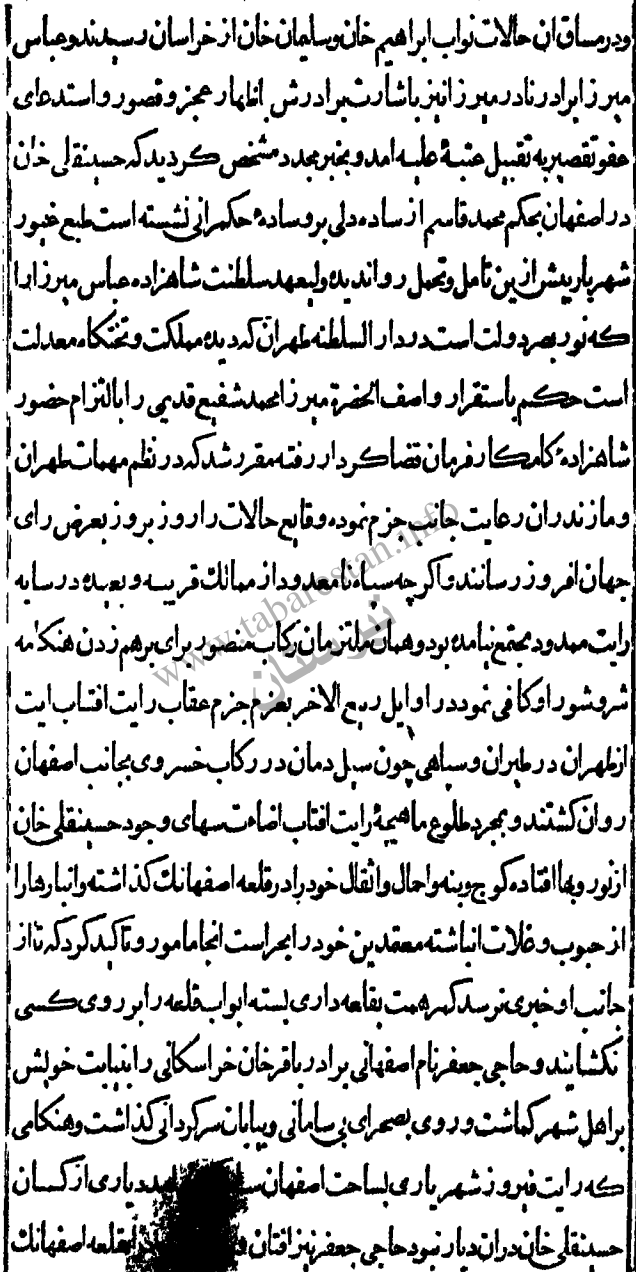 و در مساق ان حالات نواب ابراهیم خان و سلیمان خان از خراسان رسیدند و عباس
میرزا برادر نادر میرزا نیز باشارت برادرش باظهار عجز و قصور و استدعای
عفو تقصیر به تقبیل عتبهٔ علیه امد و بخبر مجدد مشخص کردید که حسینقلی خان
در اصفهان بحکم محمد قاسم از ساده دلی بر وسادهٔ حکمرانی نشسته است طبع غیور
شهریار بیش ازین تامل و تحمل روا ندیده ولیعهد سلطنت شاهزاده عباس میرزا را
که نور بصر دولت است در دار السلطنه طهران که دیدهٔ مملکت و تختکاه معدلت
است حکم باستقرار و اصف الحضرة میرزا محمد شفیع قدیمی را بالتزام حضور
شاهزادهٔ کامکار فرمان قضا کردار رفته مقرر شد که در نظم مهمات طهران
و مازندران رعایت جانب جزم نموده وقایع حالات را روز بروز بعرض رای
جهان افروز رسانند و اکرچه سپاه نا معدود از ممالک قریبه و بعیده در سایه
رایت ممدود مجتمع نیامده بود و همان ملتزمان رکاب منصور برای برهم زدن هنکامه
شر و شور او کافی نمود در اوایل ربیع الاخر بعزم جزم عقاب رایت افتاب ایت
از طهران در طیران و سپاهی چون سیل دمان در رکاب خسروی بجانب اصفهان
روان کشتند و بمجرد طلوع ماهیچهٔ رایت افتاب اضاءت سهای وجود حسینقلی خان
از نور و بها افتاده کوچ و بنه و احمال و اثقال خود را در قلعه اصفهانک کذاشته و انبارها را
از حبوب و غلات انباشته معتمدین خود را بحراست انجا مامور و تاکید کرد که تا از
جانب او خبری نرسد کمر همت بقلعه داری بسته ابواب قلعه را بر روی کسی
نکشایند و حاجی جعفر نام اصفهانی برادر باقر خان خراسکانی را بنیابت خویش
بر اهل شهر کماشت و روی بصحرای بی سامانی و بیابان سرکردانی کذاشت و هنکامی
که رایت فیروز شهریاری بساحت اصفهان دیاری از کسان
حسینقلی خان دران دیار نبود حاجی جعفر نیز افتان و بقلعه اصفهانک
www.tabarestan.info
تبرستان